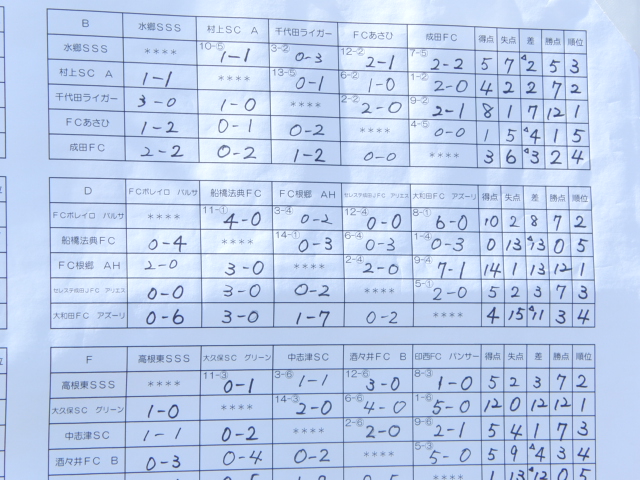 B 水郷SSS 村上SC A 千代田ライガー FCあさひ 成田FC 得点 失点 差 勝点 順位
水郷SSS **** 10-⑤ 1-1 3-② 0-3 12-② 2-1 7-⑤ 2-2 5 7 △2 5 3
村上SC A 1-1 **** 13-⑤ 0-1 6-② 1-0 1-② 2-0 4 2 2 7 2
千代田ライガー 3-0 1-0 **** 2-② 2-0 9-② 2-1 8 1 7 12 1
FCあさひ 1-2 0-1 0-2 **** 4-⑤ 0-0 1 5 △4 1 5
成田FC 2-2 0-2 1-2 0-0 **** 3 6 △3 2 4
D FCボレイロ バルサ 船橋法典FC FC根郷 AH セレステ成田JFC アリエス 大和田FC アズーリ 得点 失点 差 勝点 順位
FCボレイロ バルサ **** 11-① 4-0 3-④ 0-2 12-④ 0-0 8-① 6-0 10 2 8 7 2
船橋法典FC 0-4 **** 14-① 0-3 6-④ 0-3 1-④ 0-3 0 13 △13 0 5
FC根郷 AH 2-0 3-0 **** 2-④ 2-0 9-④ 7-1 14 1 13 12 1
セレステ成田JFC アリエス 0-0 3-0 0-2 **** 5-① 2-0 5 2 3 7 3
大和田FC アズーリ 0-6 3-0 1-7 0-2 **** 4 15 △11 3 4
F 高根東SSS 大久保SC グリーン 中志津SC 酒々井FC B 印西FC パンサー 得点 失点 差 勝点 順位
高根東SSS **** 11-③ 0-1 3-⑥ 1-1 12-⑥ 3-0 8-③ 1-0 5 2 3 7 2
大久保SC グリーン 1-0 **** 14-③ 2-0 6-⑥ 4-0 1-⑥ 5-0 12 0 12 12 1
中志津SC 1-1 0-2 **** 2-⑥ 2-0 9-⑥ 2-1 5 4 1 7 3
酒々井FC B 0-3 0-4 0-2 **** 5-③ 5-0 5 9 △4 3 4
**** 1 13 △12 0 5